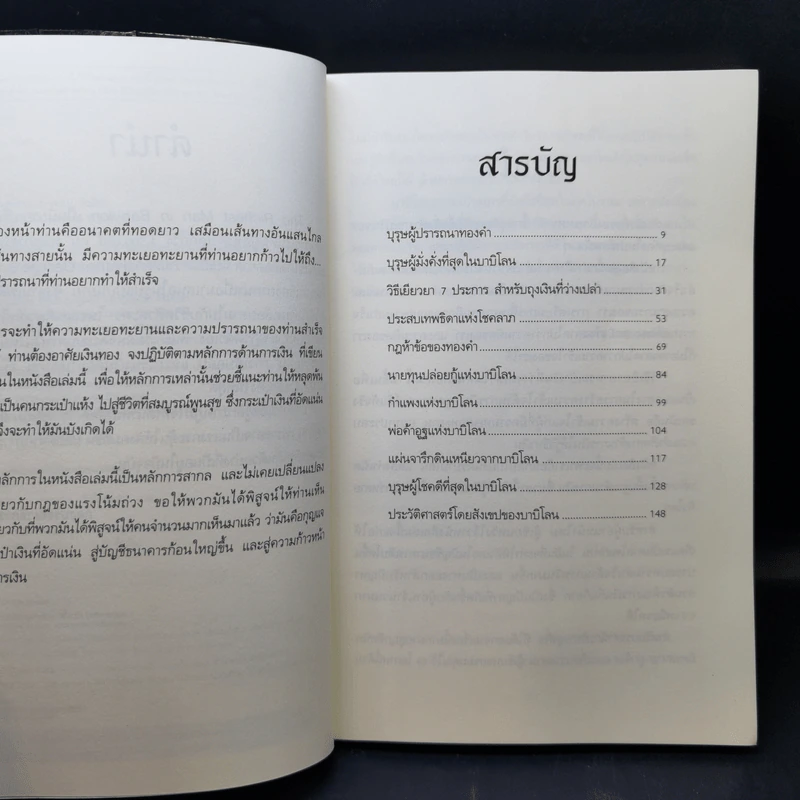 องหน้าท่านคืออนาคตที่ทอดยาว เสมือนเส้นทางอันแสนไกล
ทางสายนั้น มีความทะเยอทะยานที่ท่านอยากก้าวไปให้ถึง...
ปรารถนาที่ท่านอยากทำให้สำเร็จ
รจะทำให้ความทะเยอทะยานและความปรารถนาของท่านสำเร็จ
ท่านต้องอาศัยเงินทอง จงปฏิบัติตามหลักการด้านการเงิน ที่เขียน
นในหนังสือเล่มนี้ เพื่อให้หลักการเหล่านั้นช่วยชี้แนะท่านให้หลุดพ้น
เป็นคนกระเป๋าแห้ง ไปสู่ชีวิตที่สมบูรณ์พูนสุข ซึ่งกระเป๋าเงินที่อัดแน่น
จึงจะทำให้มันบังเกิดได้
ลักการในหนังสือเล่มนี้เป็นหลักการสากล และไม่เคยเปลี่ยนแปลง
ยวกับกฎของแรงโน้มถ่วง ขอให้พวกมันได้พิสูจน์ให้ท่านเห็น
ยวกับที่พวกมันได้พิสูจน์ให้คนจำนวนมากเห็นมาแล้ว ว่ามันคือกุญแจ
เป๋าเงินที่อัดแน่น สู่บัญชีธนาคารก้อนใหญ่ขึ้น และสู่ความก้าวหน้า
ารเงิน
สารบัญ
บุรุษผู้ปรารถนาทองคำ 9
บุรุษผู้มั่งคั่งที่สุดในบาบิโลน 17
วิธีเยียวยา 7 ประการ สำหรับถุงเงินที่ว่างเปล่า 31
ประสบเทพธิดาแห่งโชคลาภ 53
กฎห้าข้อของทองคำ 69
นายทุนปล่อยกู้แห่งบาบิโลน 84
กำแพงแห่งบาบิโลน 99
พ่อค้าอูฐแห่งบาบิโลน 104
แผ่นจารึกดินเหนียวจากบาบิโลน 117
บุรุษผู้โชคดีที่สุดในบาบิโลน 128
ประวัติศาสตร์โดยสังเขปของบาบิโลน 148